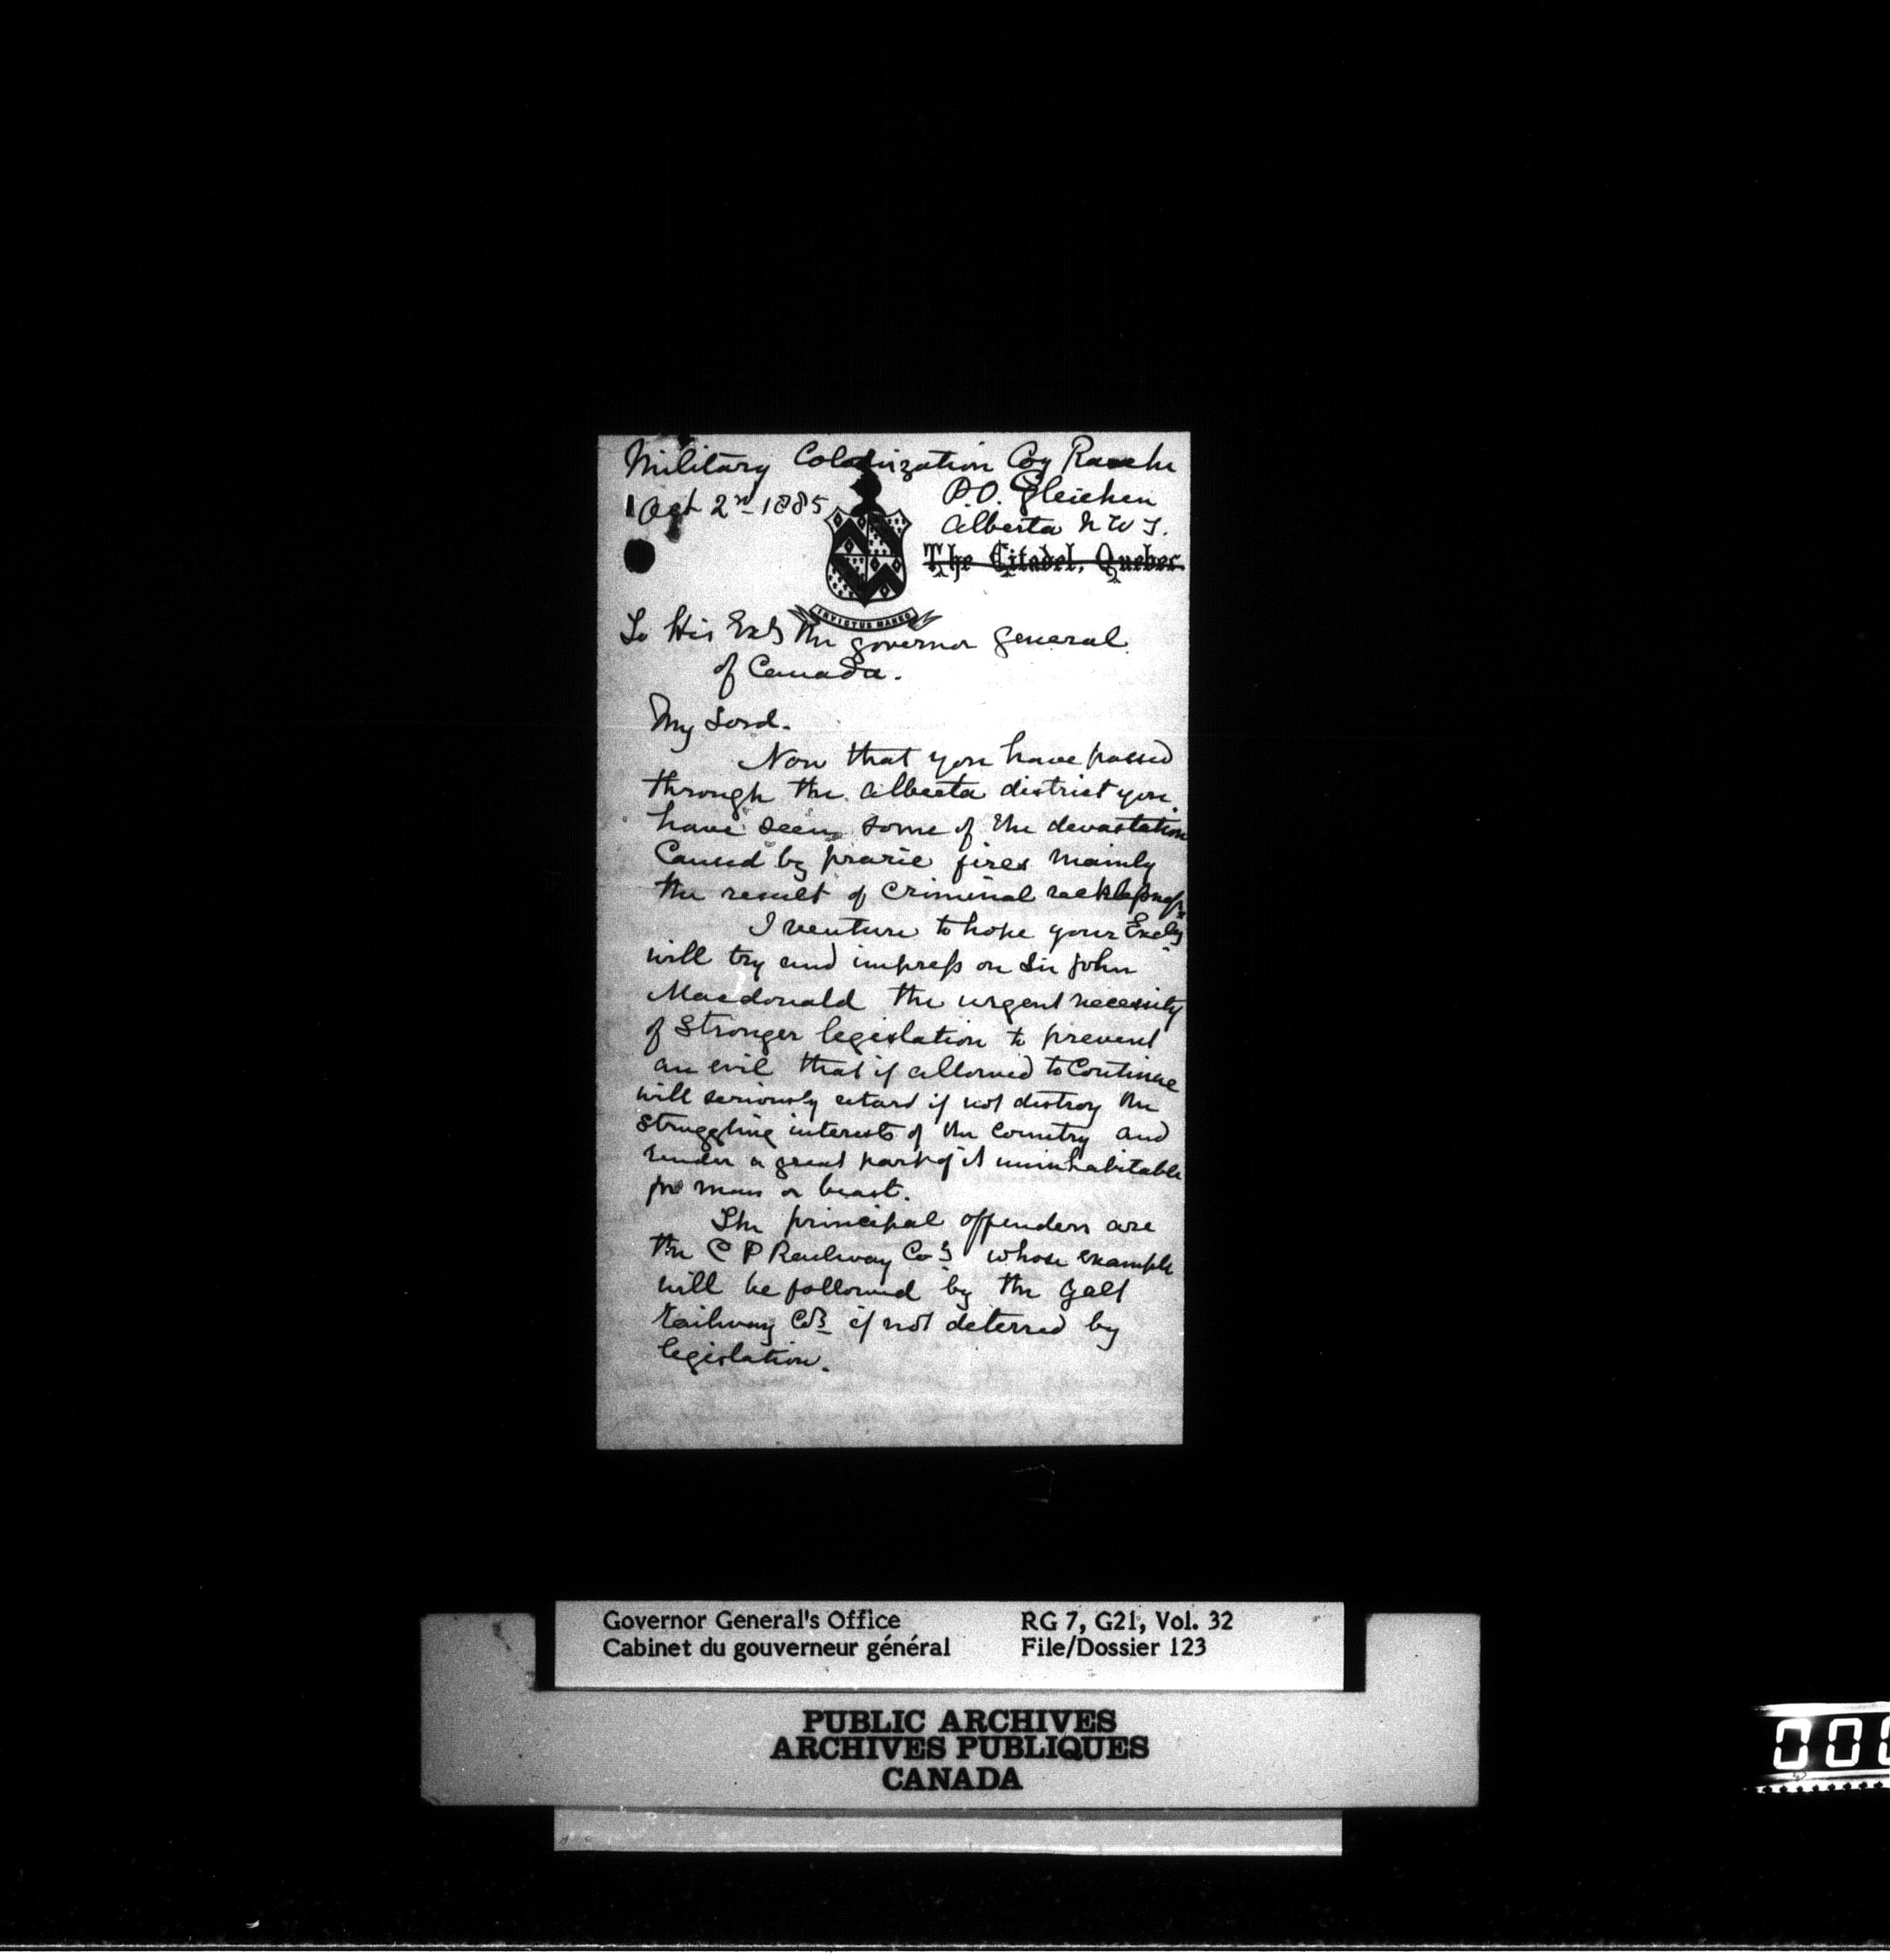 Military Colonization Coy Ranche
Oct 2nd 1885
P.O. Gleichen
Alberta N W T.
The Citadel, Quebec.
INVICTUS MANEO
To His Exly the Governor General
of Canada.
My Lord.
Now that you have passed
through the Alberta district you
have seen some of the devastation
Caused by prarie fires mainly
the result of Criminal recklessness
I venture to hope your Excly
will try and impress on Sir John
Macdonald the urgent necessity
of Stronger legislation to prevent
an evil that if allowed to Continue
will seriously retard if not destroy the
struggling interests of the Country and
render a great part of it uninhabitable
for man or beast.
The principal offenders are
the C P Railway Coy whose example
will be followed by the Galt
Railway Coy if not deterred by
legislation.
Governor General's Office RG 7, G21, Vol. 32
Cabinet du gouverneur général File/Dossier 123
PUBLIC ARCHIVES
ARCHIVES PUBLIQUES
CANADA
000